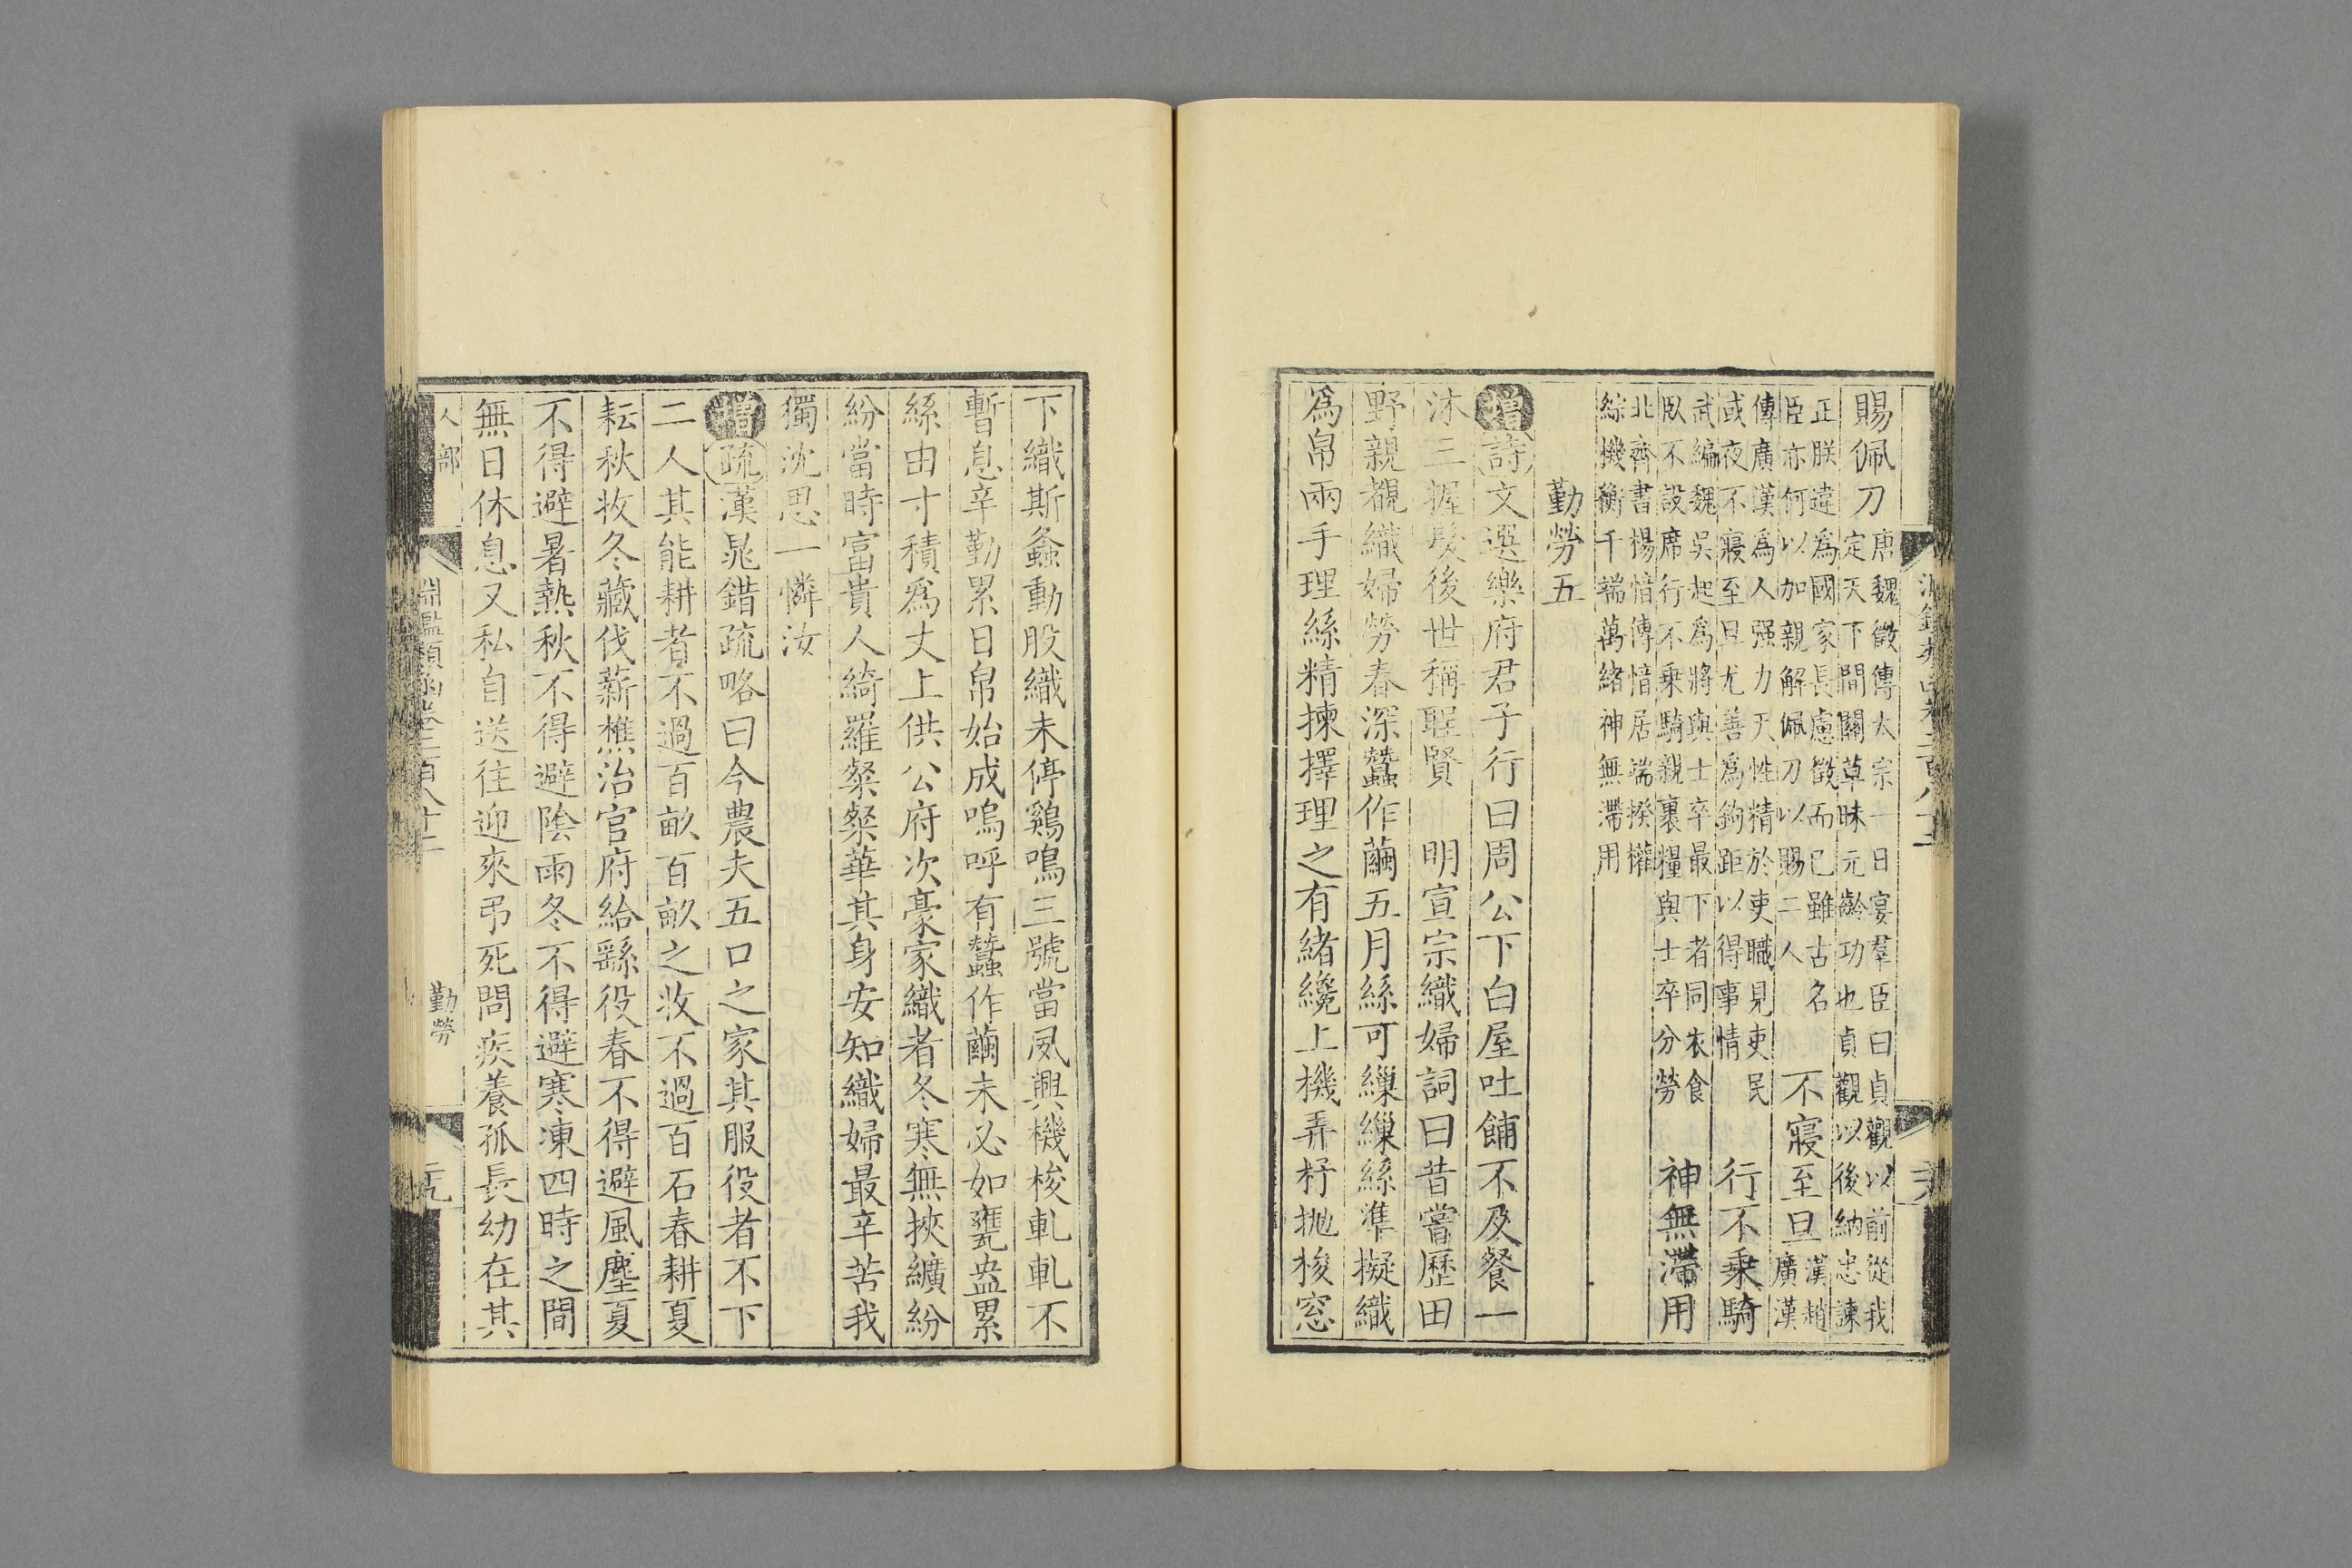 賜佩刀
唐魏徵傳太宗一日宴羣臣曰貞觀以前從我
定天下間關草昧元齡功也貞觀以後納忠諫
正朕違爲國家長慮徵而已雖古名
臣亦何以加親解佩刀以賜二人
不寢至旦
漢趙
廣漢
傳廣漢爲人强力天性精於吏職見吏民
或夜不寢至旦尤善爲鉤距以得事情
行不乗騎
武編魏吳起爲將與士卒最下者同衣食
臥不設席行不乗騎親裹糧與士卒分勞
神無滯用
北齊書楊愔傳愔居端揆權
綜機衡千端萬緒神無滯用
勤勞五
增詩文選樂府君子行曰周公下白屋吐餔不及餐一
沐三握髮後世稱聖賢　明宣宗織婦詞曰昔嘗歷田
野親覩織婦勞春深蠶作繭五月絲可繰繰絲準擬織
爲帛兩手理絲精揀擇理之有緒纔上機弄杼抛梭窓
下織斯螽動股織未停鷄鳴三號當夙興機梭軋軋不
暫息辛勤累日帛始成嗚呼有蠶作繭未必如甕盎累
絲由寸積爲丈上供公府次豪家織者冬寒無挾纊紛
紛當時富貴人綺羅粲粲華其身安知織婦最辛苦我
獨沈思一憐汝
增疏漢晁錯疏略曰今農夫五口之家其服役者不下
二人其能耕者不過百畝百畝之收不過百石春耕夏
耘秋收冬藏伐薪樵治官府給繇役春不得避風塵夏
不得避暑熱秋不得避陰雨冬不得避寒凍四時之間
無日休息又私自送往迎來弔死問疾養孤長幼在其
人部
淵鑑類函卷二百八十二
勤勞